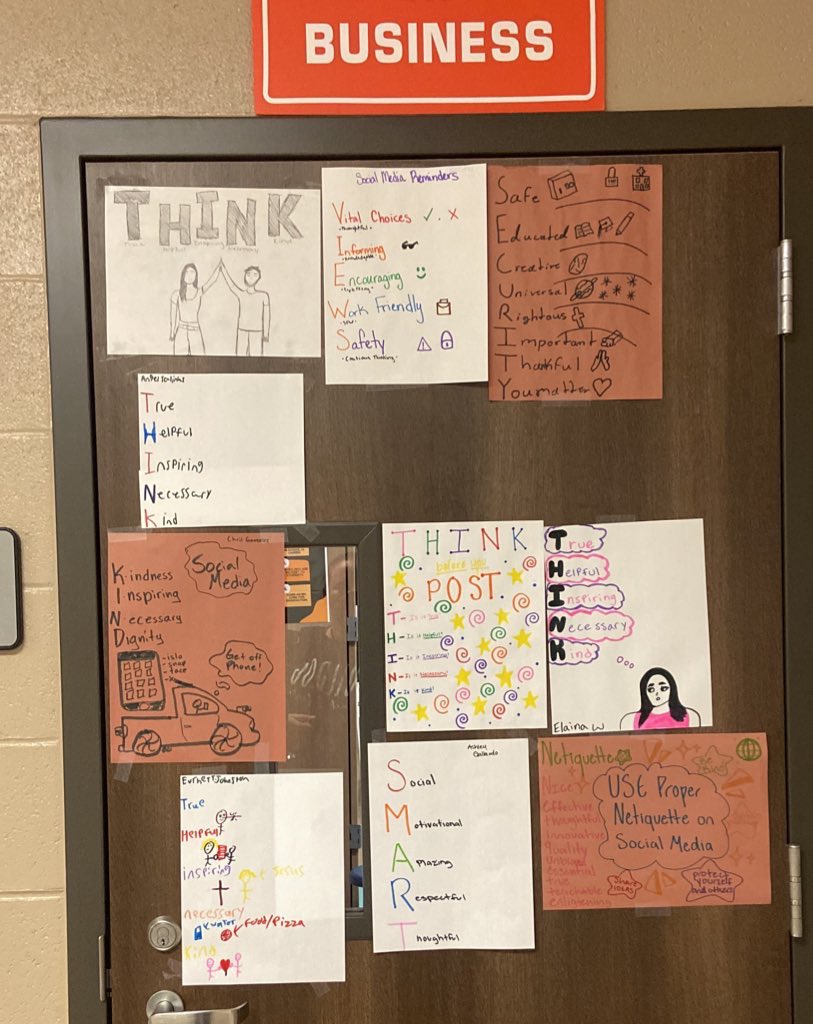 BUSINESS
THINK
True Helpful Inspiring Necessary Kind
Social Media Reminders
Vital Choices
Informing
Encouraging
Work Friendly
Safety
Safe
Educated
Creative
Universal
Rightous
Important
Thankful
You matter
True
Helpful
Inspiring
Necessary
Kind
Social
Media
Kindness
Inspiring
Necessary
Dignity
Get off
Phone!
THINK
before you
POST
T - Is it True?
H - Is it Helpful?
I - Is it Inspiring?
N - Is it Necessary?
K - Is it Kind?
True
Helpful
Inspiring
Necessary
Kind
Elaina W
True
Helpful
inspiring
Jesus
necessary
water
Food/Pizza
Kind
Ashley
Social
Motivational
Amazing
Respectful
Thoughtful
Netiquette
Nice
Effective
thoughtful
innovative
quality
essential
true
teachable
enlightening
USE Proper
Netiquette on
Social Media
Share
ideas
protect
yourself
and others